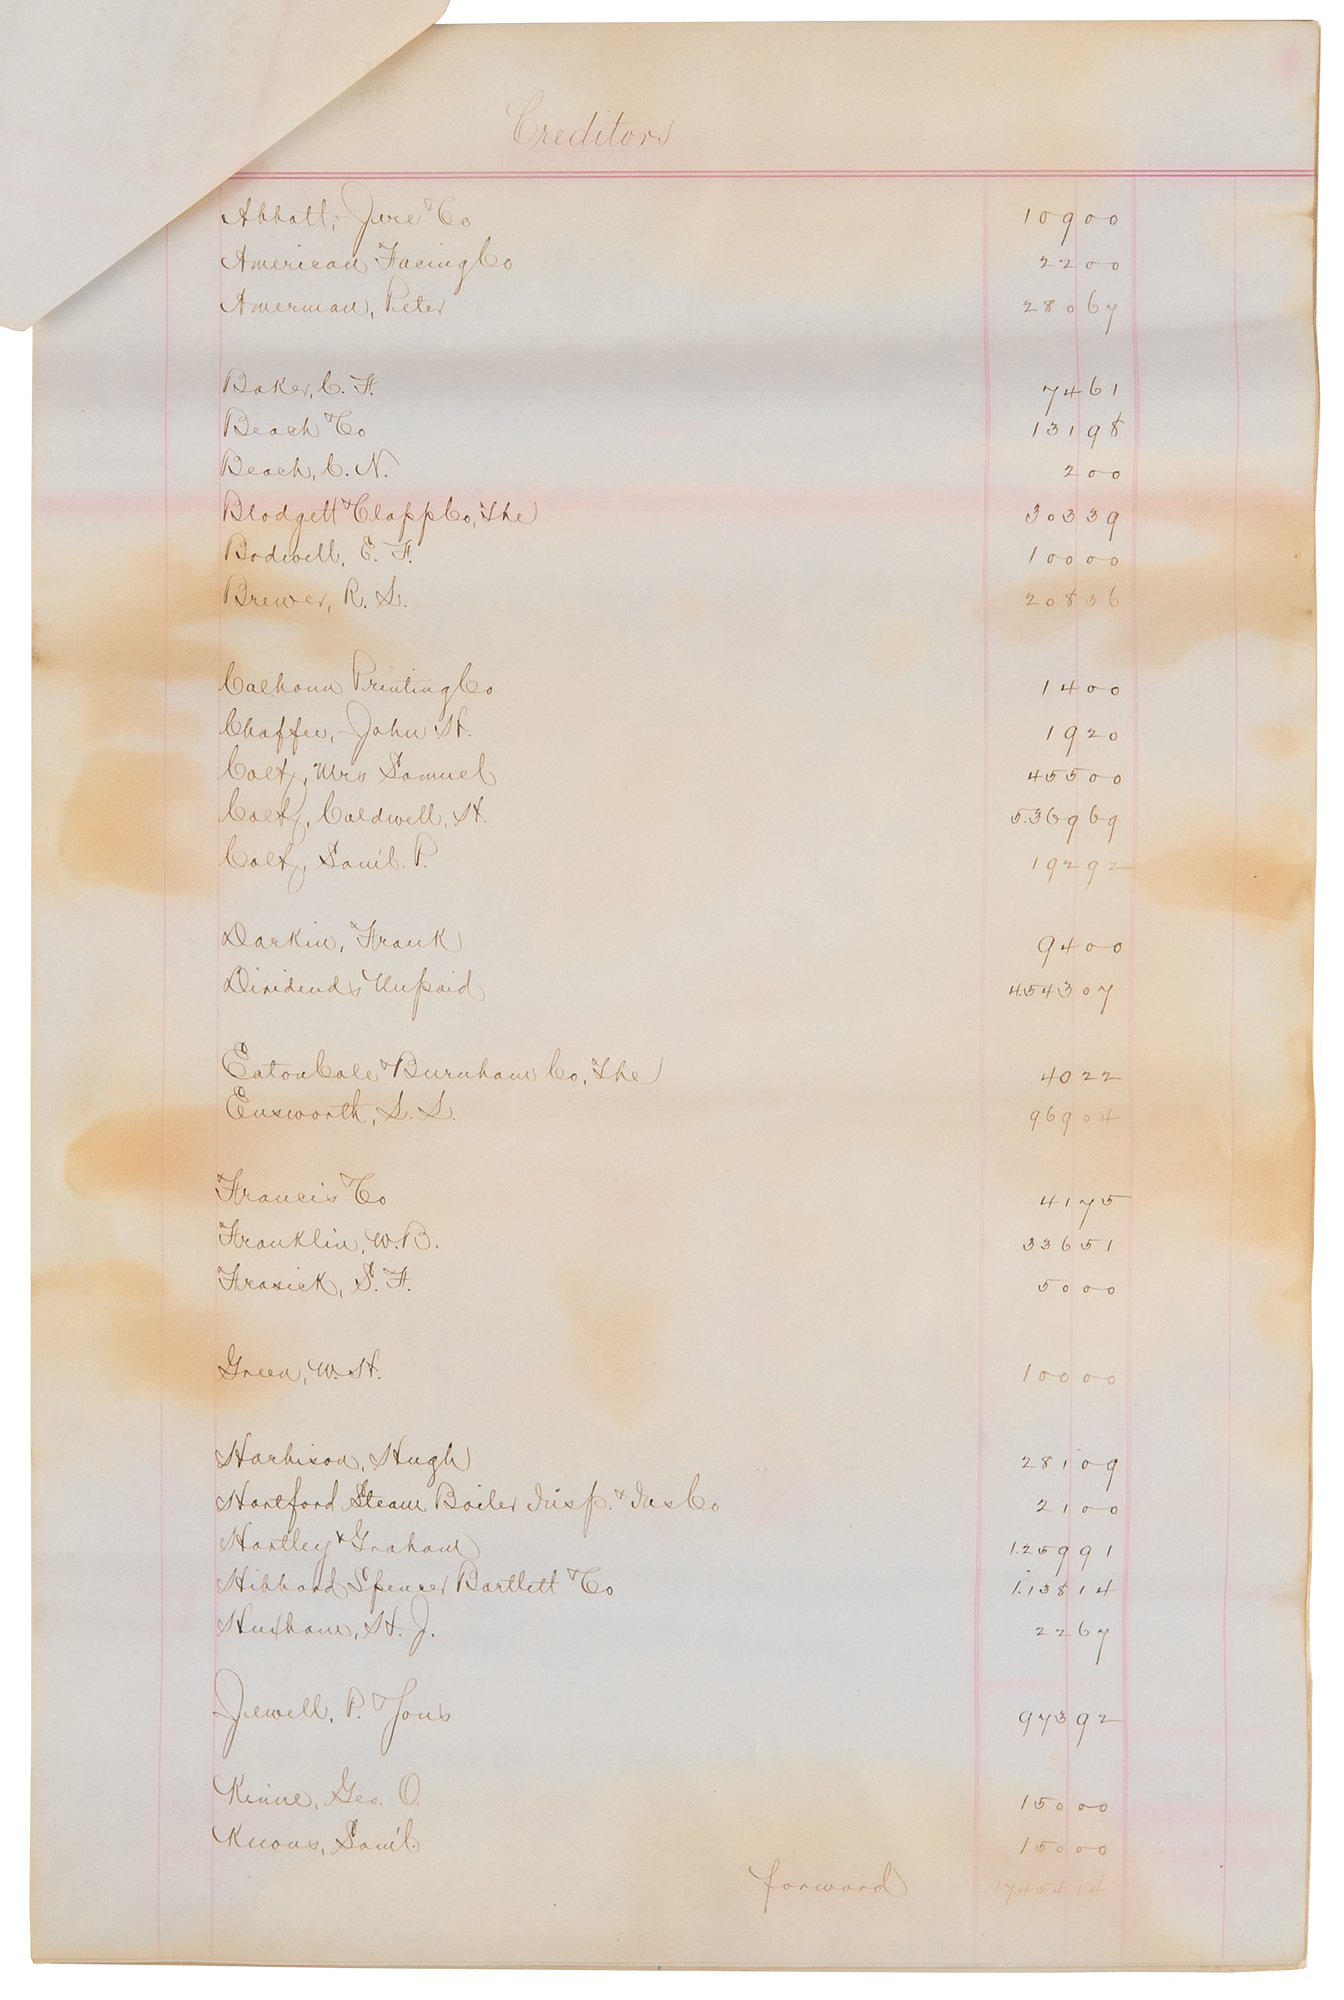 Creditors
Abbott, Jere & Co 109 00
American Facing Co 22 00
Amerman, Peter 280 67
Baker, C. F. 74 61
Beach & Co 131 98
Beach, C. N. 2 00
Blodgett & Clapp Co, The 303 39
Bodwell, E. F. 100 00
Brewer, R. S. 208 36
Calhoun Printing Co 14 00
Chaffee, John H. 19 20
Colt, Mrs Samuel 455 00
Colt, Caldwell, H. 5.369 69
Colt, Saml. P. 192 92
Darkin, Frank 94 00
Dividends Unpaid 4.543 07
Eaton Cole & Burnham Co, The 40 22
Ensworth, L. L. 969 04
Francis & Co 41 75
Franklin, W. B. 336 51
Frasick, S. F. 50 00
Green, W. H. 100 00
Harbison, Hugh 281 09
Hartford Steam Boiler Insp. & Ins Co 21 00
Hartley & Graham 1.259 91
Hibbard Spencer Bartlett & Co 1.138 14
Huxham, H. J. 22 67
Jewell, P. & Sons 973 92
Kinne, Geo. O. 150 00
Knous, Saml. 150 00
forward 17454 14